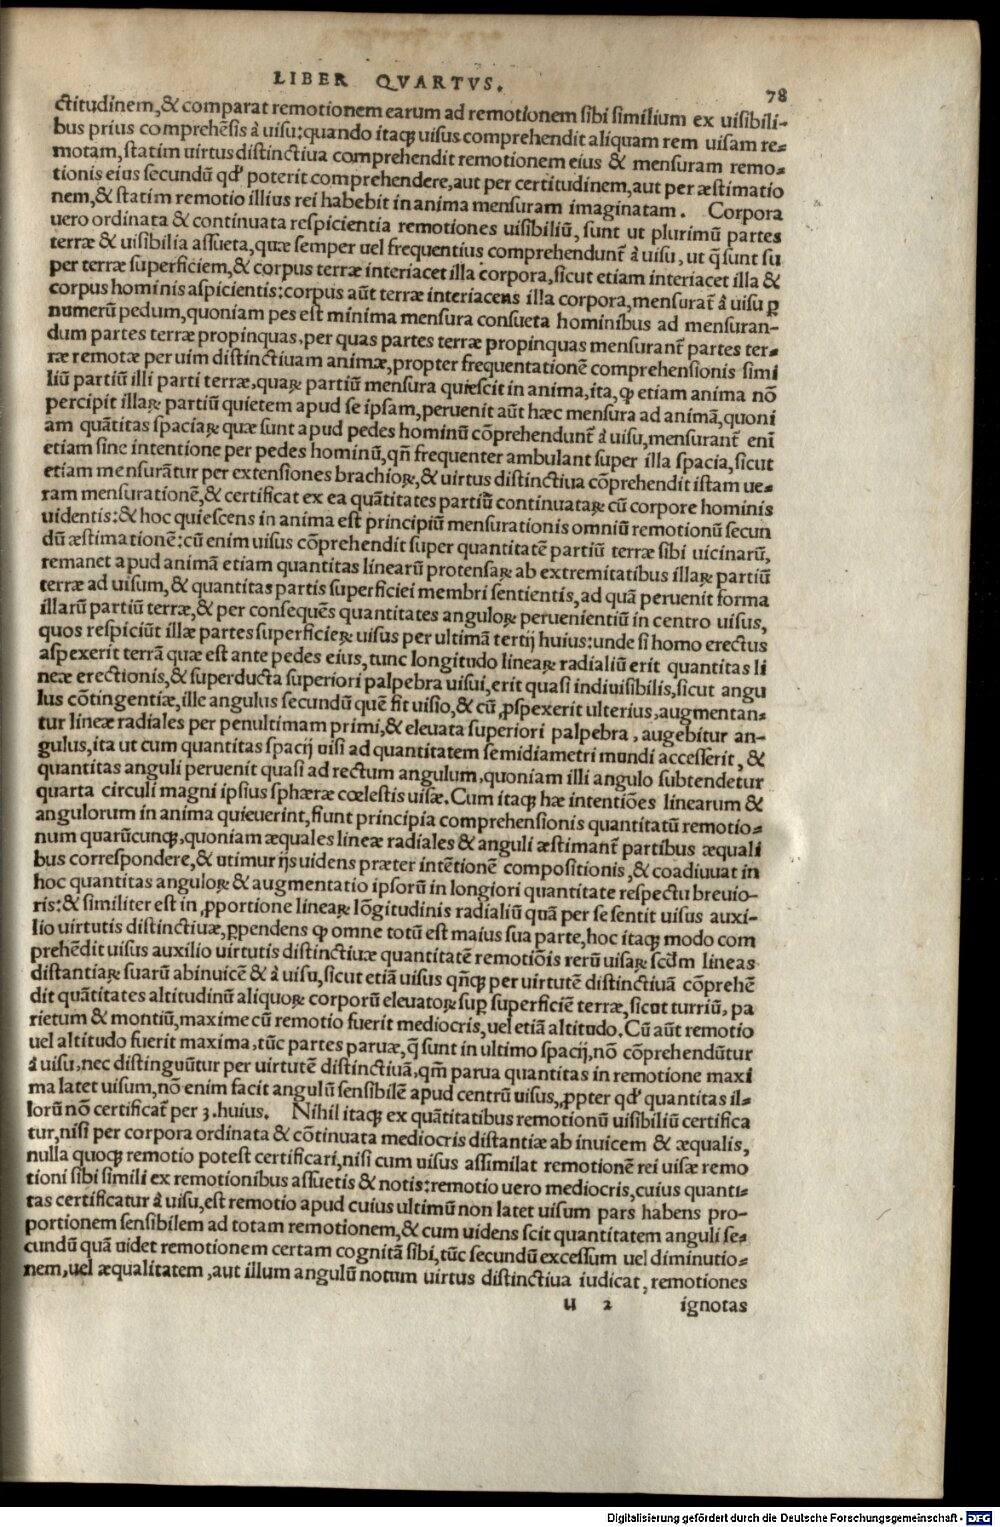 LIBER QVARTVS.
78
ctitudinem,& comparat remotionem earum ad remotionem sibi similium ex uisibili-
bus prius comprehẽsis à uisu:quando itaqʒ uisus comprehendit aliquam rem uisam re-
motam,statim uirtus distinctiua comprehendit remotionem eius & mensuram remo-
tionis eius secundũ qď poterit comprehendere,aut per certitudinem,aut per æstimatio
nem,& statim remotio illius rei habebit in anima mensuram imaginatam. Corpora
uero ordinata & continuata respicientia remotiones uisibiliũ, sunt ut plurimũ partes
terræ & uisibilia assueta,quæ semper uel frequentius comprehendunt̃ à uisu, ut q̃ sunt su
per terræ superficiem,& corpus terræ interiacet illa corpora,sicut etiam interiacet illa &
corpus hominis aspicientis:corpus aũt terræ interiacens illa corpora,mensurat̃ à uisu ꝑ
numerũ pedum,quoniam pes est minima mensura consueta hominibus ad mensuran-
dum partes terræ propinquas,per quas partes terræ propinquas mensurant̃ partes ter-
ræ remotæ per uim distinctiuam animæ,propter frequentationẽ comprehensionis simi
liũ partiũ illi parti terræ,quaꝝ partiũ mensura quiescit in anima,ita,ꝙ etiam anima nõ
percipit illaꝝ partiũ quietem apud se ipsam,peruenit aũt hæc mensura ad animã,quoni
am quãtitas spaciaꝝ quæ sunt apud pedes hominũ cõprehendunt̃ à uisu,mensurant̃ enĩ
etiam sine intentione per pedes hominũ,qñ frequenter ambulant super illa spacia,sicut
etiam mensurãtur per extensiones brachioꝝ,& uirtus distinctiua cõprehendit istam ue-
ram mensurationẽ,& certificat ex ea quãtitates partiũ continuataꝝ cũ corpore hominis
uidentis:& hoc quiescens in anima est principiũ mensurationis omniũ remotionũ secun
dũ æstimationẽ:cũ enim uisus cõprehendit super quantitatẽ partiũ terræ sibi uicinarũ,
remanet apud animã etiam quantitas linearũ protensaꝝ ab extremitatibus illaꝝ partiũ
terræ ad uisum,& quantitas partis superficiei membri sentientis,ad quã peruenit forma
illarũ partiũ terræ,& per consequẽs quantitates anguloꝝ peruenientiũ in centro uisus,
quos respiciũt illæ partes superficieꝝ uisus per ultimã tertij huius:unde si homo erectus
aspexerit terrã quæ est ante pedes eius,tunc longitudo lineaꝝ radialiũ erit quantitas li
neæ erectionis,& superducta superiori palpebra uisui,erit quasi indiuisibilis,sicut angu
lus cõtingentiæ,ille angulus secundũ quẽ fit uisio,& cũ ꝓspexerit ulterius,augmentan-
tur lineæ radiales per penultimam primi,& eleuata superiori palpebra, augebitur an-
gulus,ita ut cum quantitas spacij uisi ad quantitatem semidiametri mundi accesserit, &
quantitas anguli peruenit quasi ad rectum angulum,quoniam illi angulo subtendetur
quarta circuli magni ipsius sphæræ cœlestis uisæ. Cum itaqʒ hæ intentiões linearum &
angulorum in anima quieuerint,fiunt principia comprehensionis quantitatũ remotio-
num quarũcunqʒ,quoniam æquales lineæ radiales & anguli æstimant̃ partibus æquali
bus correspondere,& utimur ijs uidens præter intẽtionẽ compositionis,& coadiuuat in
hoc quantitas anguloꝝ & augmentatio ipsorũ in longiori quantitate respectu breuio-
ris:& similiter est in ꝓportione lineaꝝ lõgitudinis radialiũ quã per se sentit uisus auxi-
lio uirtutis distinctiuæ,ꝑpendens ꝙ omne totũ est maius sua parte,hoc itaqʒ modo com
prehẽdit uisus auxilio uirtutis distinctiuæ quantitatẽ remotiõis rerũ uisaꝝ scďm lineas
distantiaꝝ suarũ abinuicẽ & à uisu,sicut etiã uisus qñqʒ per uirtutẽ distinctiuã cõprehẽ
dit quãtitates altitudinũ aliquoꝝ corporũ eleuatoꝝ suꝑ superficiẽ terræ,sicut turriũ, pa
rietum & montiũ,maxime cũ remotio fuerit mediocris,uel etiã altitudo. Cũ aũt remotio
uel altitudo fuerit maxima,tũc partes paruæ,q̃ sunt in ultimo spacij,nõ cõprehendũtur
à uisu,nec distinguũtur per uirtutẽ distinctiuã,qm̃ parua quantitas in remotione maxi
ma latet uisum,nõ enim facit angulũ sensibilẽ apud centrũ uisus,ꝓpter qď quantitas il-
lorũ nõ certificat̃ per 3.huius. Nihil itaqʒ ex quãtitatibus remotionũ uisibiliũ certifica
tur,nisi per corpora ordinata & cõtinuata mediocris distantiæ ab inuicem & æqualis,
nulla quoqʒ remotio potest certificari,nisi cum uisus assimilat remotionẽ rei uisæ remo
tioni sibi simili ex remotionibus assuetis & notis:remotio uero mediocris,cuius quanti-
tas certificatur à uisu,est remotio apud cuius ultimũ non latet uisum pars habens pro-
portionem sensibilem ad totam remotionem,& cum uidens scit quantitatem anguli se-
cundũ quã uidet remotionem certam cognitã sibi,tũc secundũ excessum uel diminutio-
nem,uel æqualitatem,aut illum angulũ notum uirtus distinctiua iudicat, remotiones
u 2 ignotas
Digitalisierung gefördert durch die Deutsche Forschungsgemeinschaft - DFG